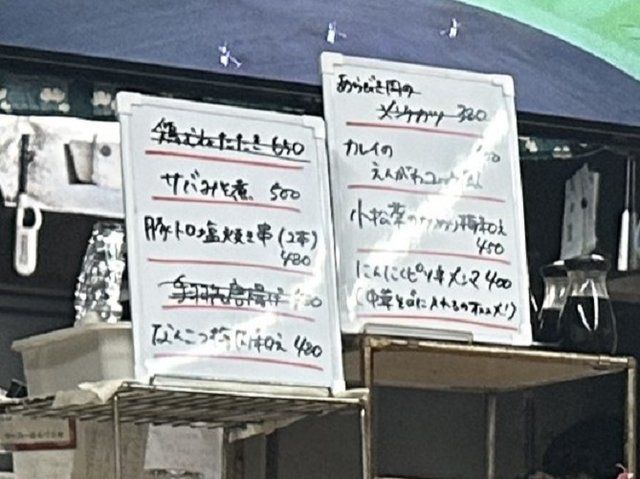 鶏むねたたき 650
サバみそ煮 500
豚トロ塩焼き串(2本)
480
手羽先唐揚げ
なんこつ梅 和え 420
あらびき肉の
メンチカツ 320
カレイの
えんがわ
小松菜の 梅和え
450
にんにくピリ辛メンマ 400
(中華そばに入れるのオススメ!)